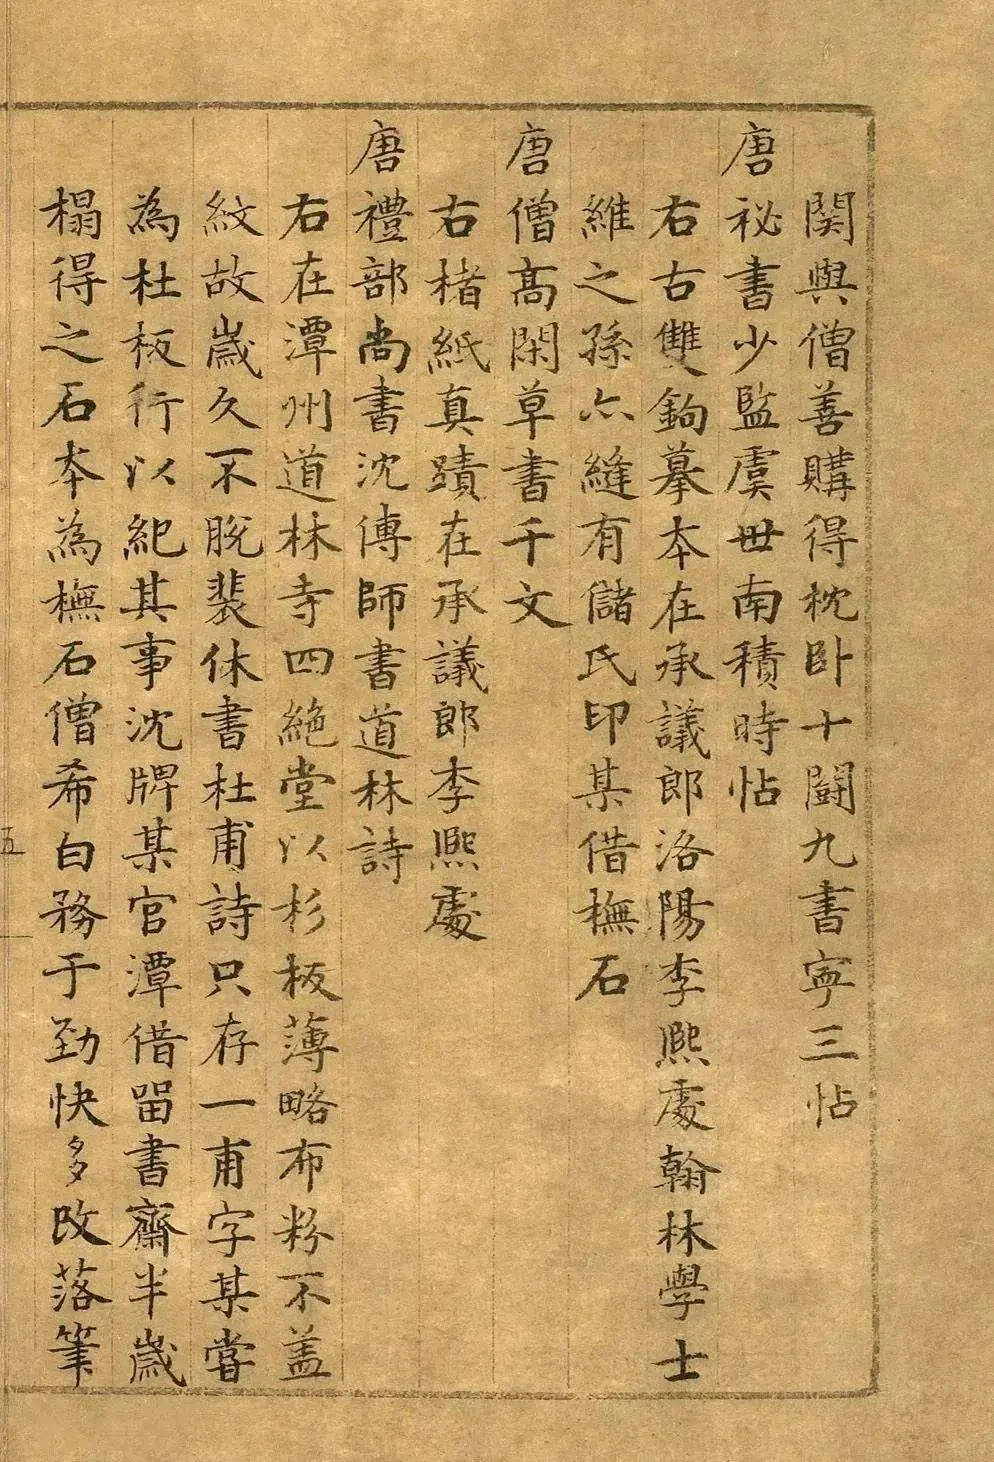 関與僧善購得枕卧十闘九書寜三帖
唐祕書少監虞世南積時帖
右古雙鉤摹本在承議郎洛陽李熈處翰林學士
維之孫六縫有儲氏印某借橅石
唐僧髙閑草書千文
右楮紙真蹟在承議郎李熈處
唐禮部尚書沈傳師書道林詩
右在潭州道林寺四絶堂以杉板薄略布粉不盖
紋故歳久不脫裴休書杜甫詩只存一甫字某嘗
為杜板行以紀其事沈牌某官潭借留書齋半歳
榻得之石本為橅石僧希白務于勁快多改落筆
五